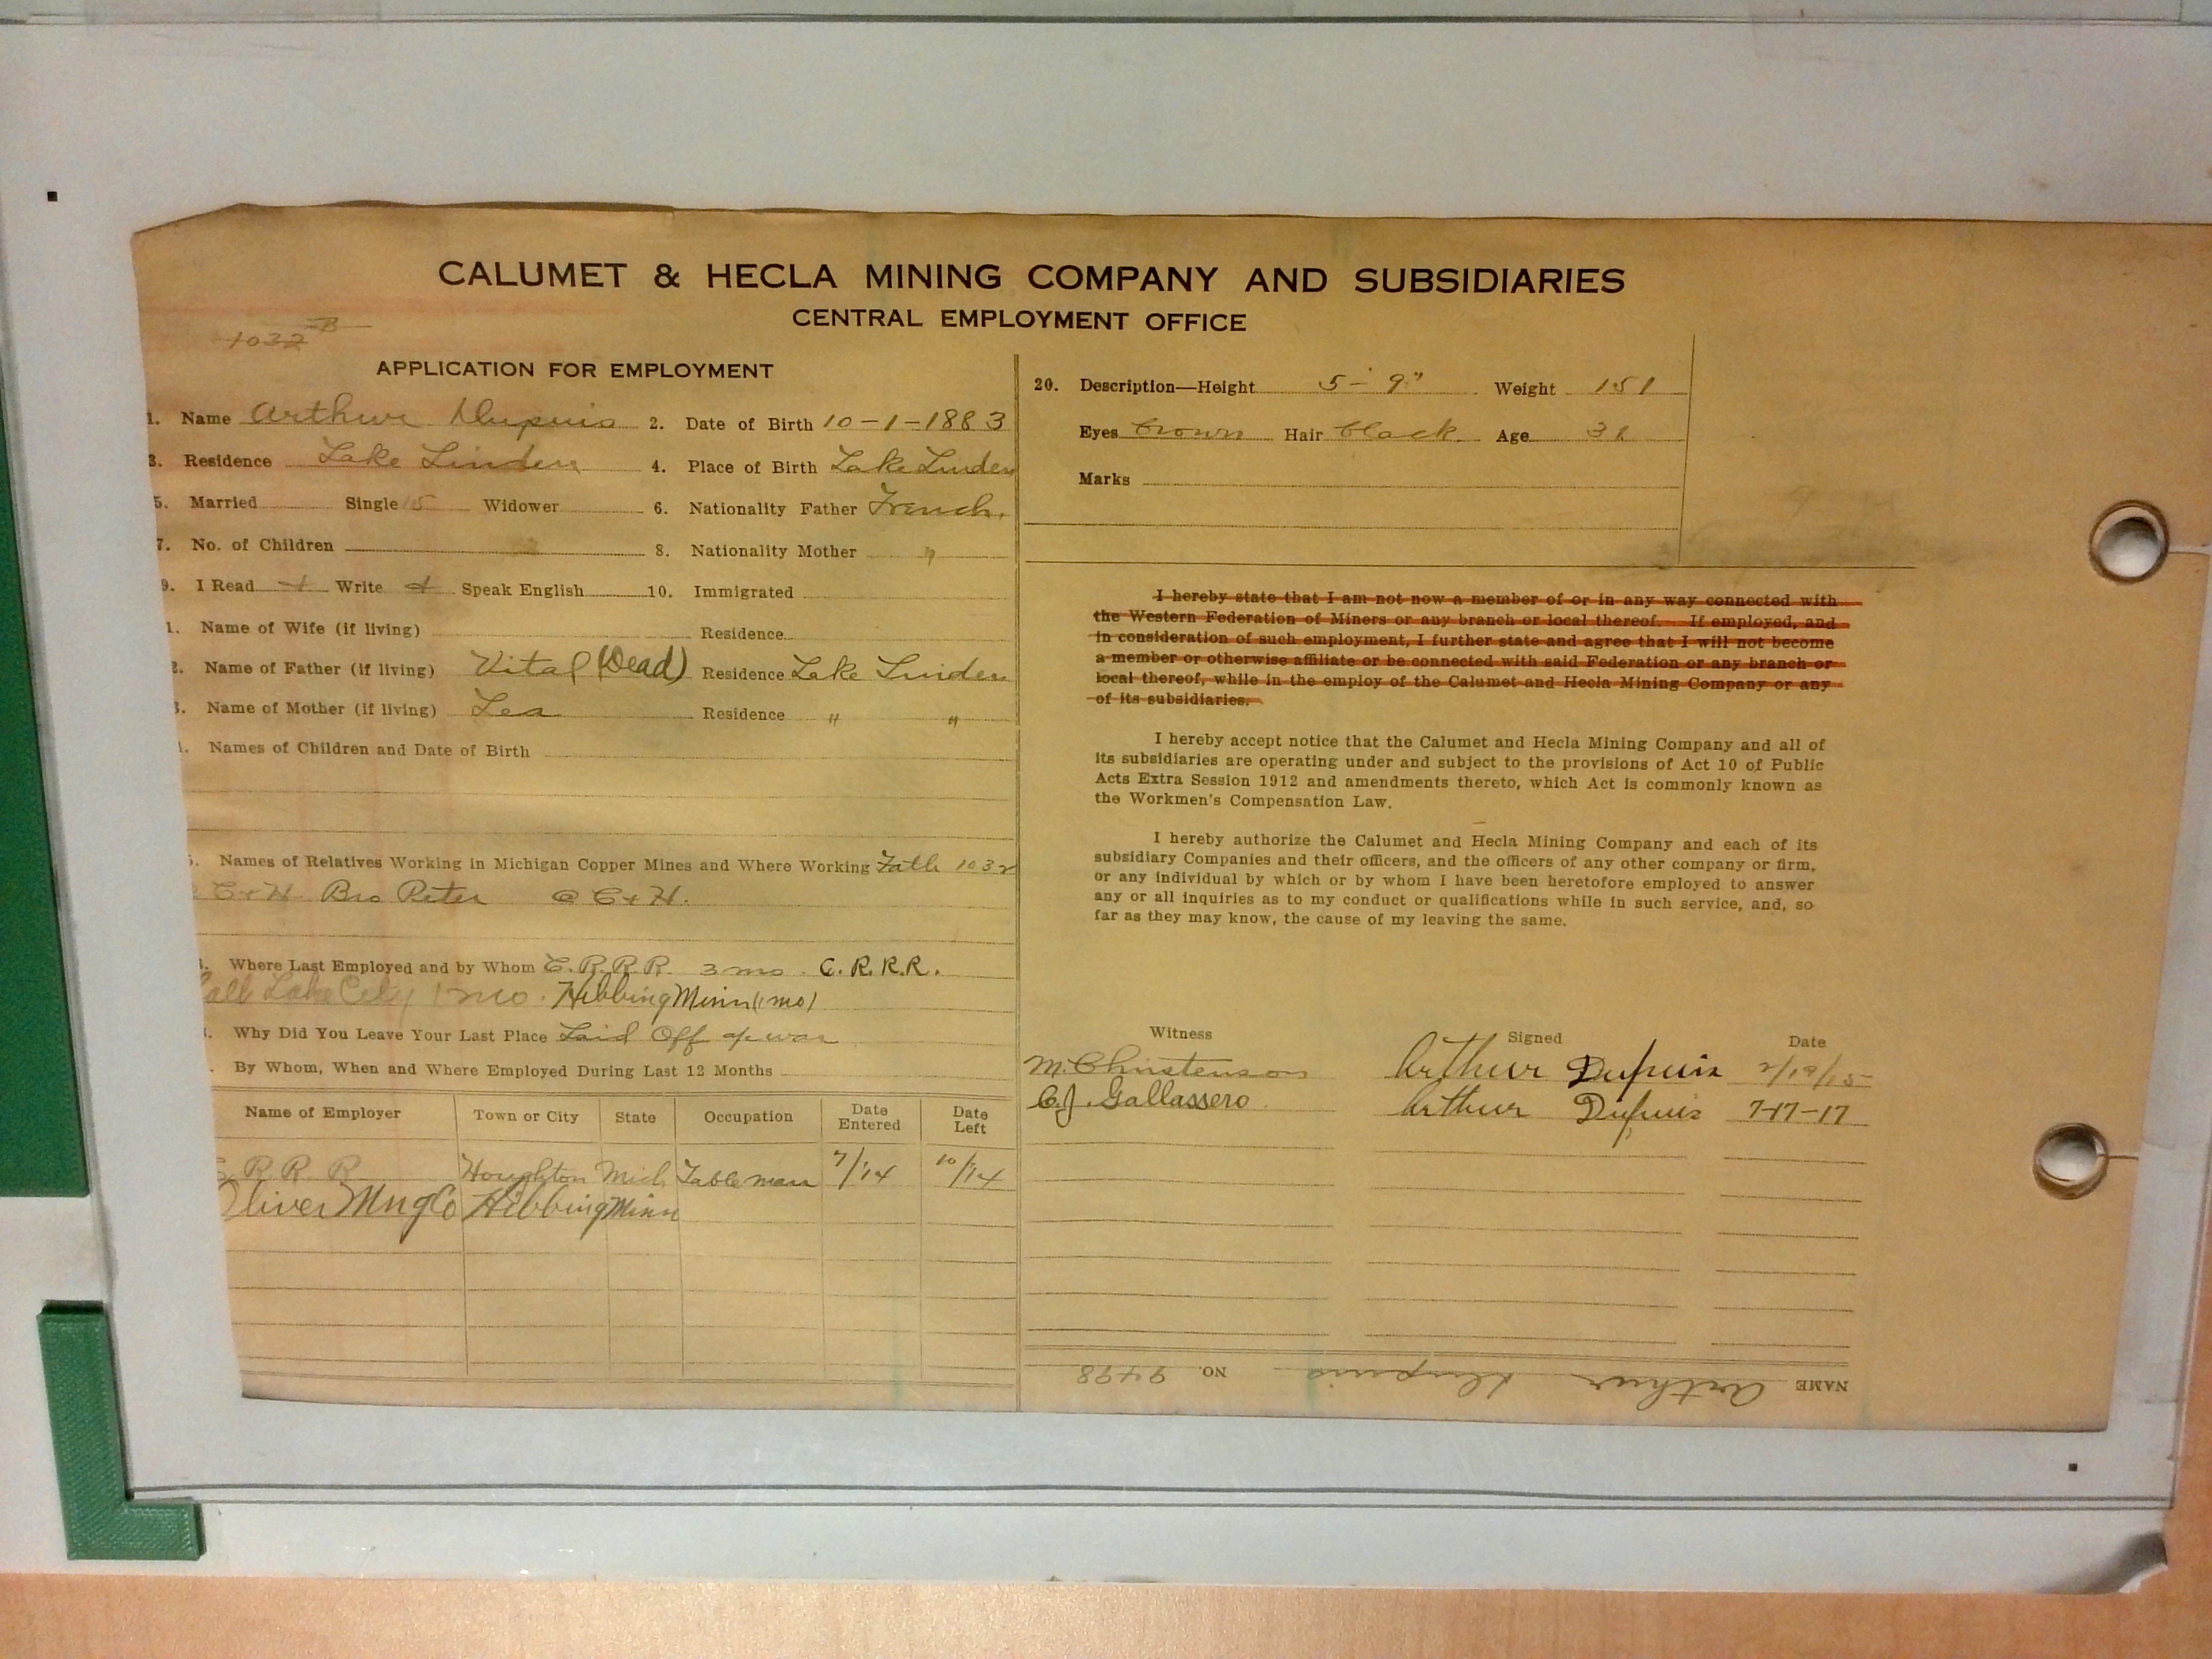 CALUMET & HECLA MINING COMPANY AND SUBSIDIARIES
CENTRAL EMPLOYMENT OFFICE
1032 B
APPLICATION FOR EMPLOYMENT
1. Name Arthur Dupuis 2. Date of Birth 10-1-1883
3. Residence Lake Linden 4. Place of Birth Lake Linden
5. Married Single 15 Widower 6. Nationality Father French.
7. No. of Children 8. Nationality Mother "
9. I Read + Write + Speak English 10. Immigrated
1. Name of Wife (if living) Residence
2. Name of Father (if living) Vital (Dead) Residence Lake Linden
3. Name of Mother (if living) Lea Residence " "
Names of Children and Date of Birth
Names of Relatives Working in Michigan Copper Mines and Where Working Fath 1032
C+H. Bro Peter @ C+H.
Where Last Employed and by Whom C.R.R.R. 3 mo. C.R.R.R.
Lake City Hibbing Minn (1 mo)
Why Did You Leave Your Last Place Laid Off
By Whom, When and Where Employed During Last 12 Months
Name of Employer Town or City State Occupation Date Entered Date Left
C R. R. R Houghton Mich Table man 7/14 10/14
Oliver Mng Co Hibbing Minn
20. Description—Height 5-9" Weight 151
Eyes brown Hair black Age 31
Marks
I hereby state that I am not now a member of or in any way connected with
the Western Federation of Miners or any branch or local thereof. If employed, and
in consideration of such employment, I further state and agree that I will not become
a member or otherwise affiliate or be connected with said Federation or any branch or
local thereof, while in the employ of the Calumet and Hecla Mining Company or any
of its subsidiaries.
I hereby accept notice that the Calumet and Hecla Mining Company and all of
its subsidiaries are operating under and subject to the provisions of Act 10 of Public
Acts Extra Session 1912 and amendments thereto, which Act is commonly known as
the Workmen's Compensation Law.
I hereby authorize the Calumet and Hecla Mining Company and each of its
subsidiary Companies and their officers, and the officers of any other company or firm,
or any individual by which or by whom I have been heretofore employed to answer
any or all inquiries as to my conduct or qualifications while in such service, and, so
far as they may know, the cause of my leaving the same.
Witness Signed Date
M. Christenson Arthur Dupuis 2/19/15
C.J. Gallassero Arthur Dupuis 7-17-17
NAME Arthur Dupuis NO. 9498